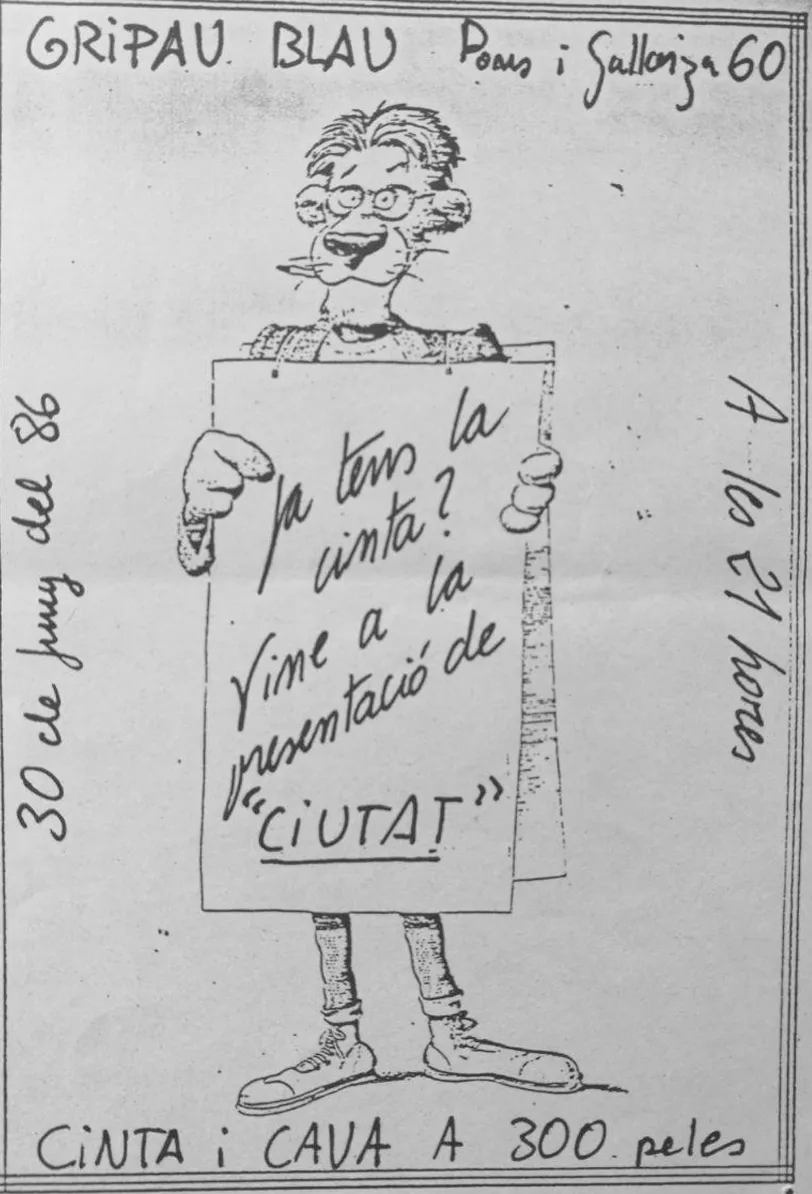 GRiPAU BLAU Pons i Gallarza 60
30 de juny del 86
Ja tens la
cinta?
Vine a la
presentació de
"CiUTAT"
A les 21 hores
CiNTA i CAVA A 300 peles